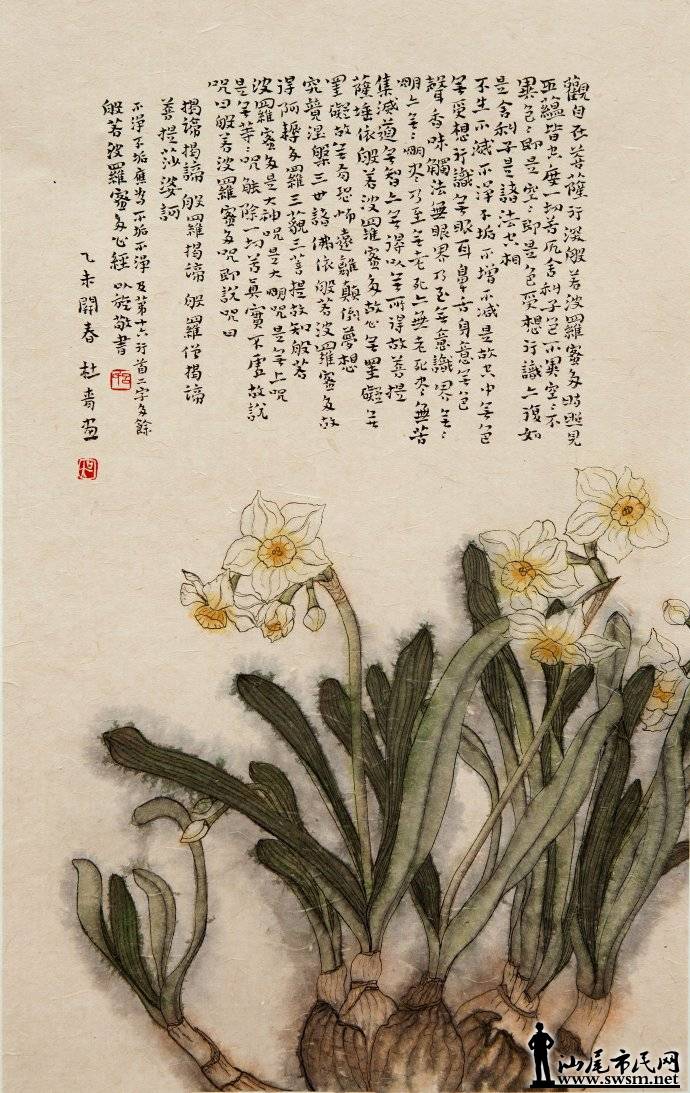 觀自在菩薩行深般若波羅蜜多時照見
五蘊皆空度一切苦厄舍利子色不異空〻不
異色〻即是空〻即是色受想行識亦復如
是舍利子是諸法空相
不生不滅不淨不垢不增不減是故空中無色
無受想行識無眼耳鼻舌身意無色
聲香味觸法無眼界乃至無意識界無〻
明亦無〻明盡乃至無老死亦無老死盡無苦
集滅道無智亦無得以無所得故菩提
薩埵依般若波羅蜜多故心無罣礙無
罣礙故無有恐怖遠離顛倒夢想
究竟涅槃三世諸佛依般若波羅蜜多故
得阿耨多羅三藐三菩提故知般若
波羅蜜多是大神咒是大明咒是無上咒
是無等〻咒能除一切苦真實不虛故說
咒曰般若波羅蜜多咒即說咒曰
揭諦揭諦 般羅揭諦 般羅僧揭諦
菩提莎婆訶
不淨不垢應為不垢不淨及第十六行首二字多餘
般若波羅蜜多心經 以旋敬書
乙未開春 杜青畫
汕尾市民网
www.swsm.net